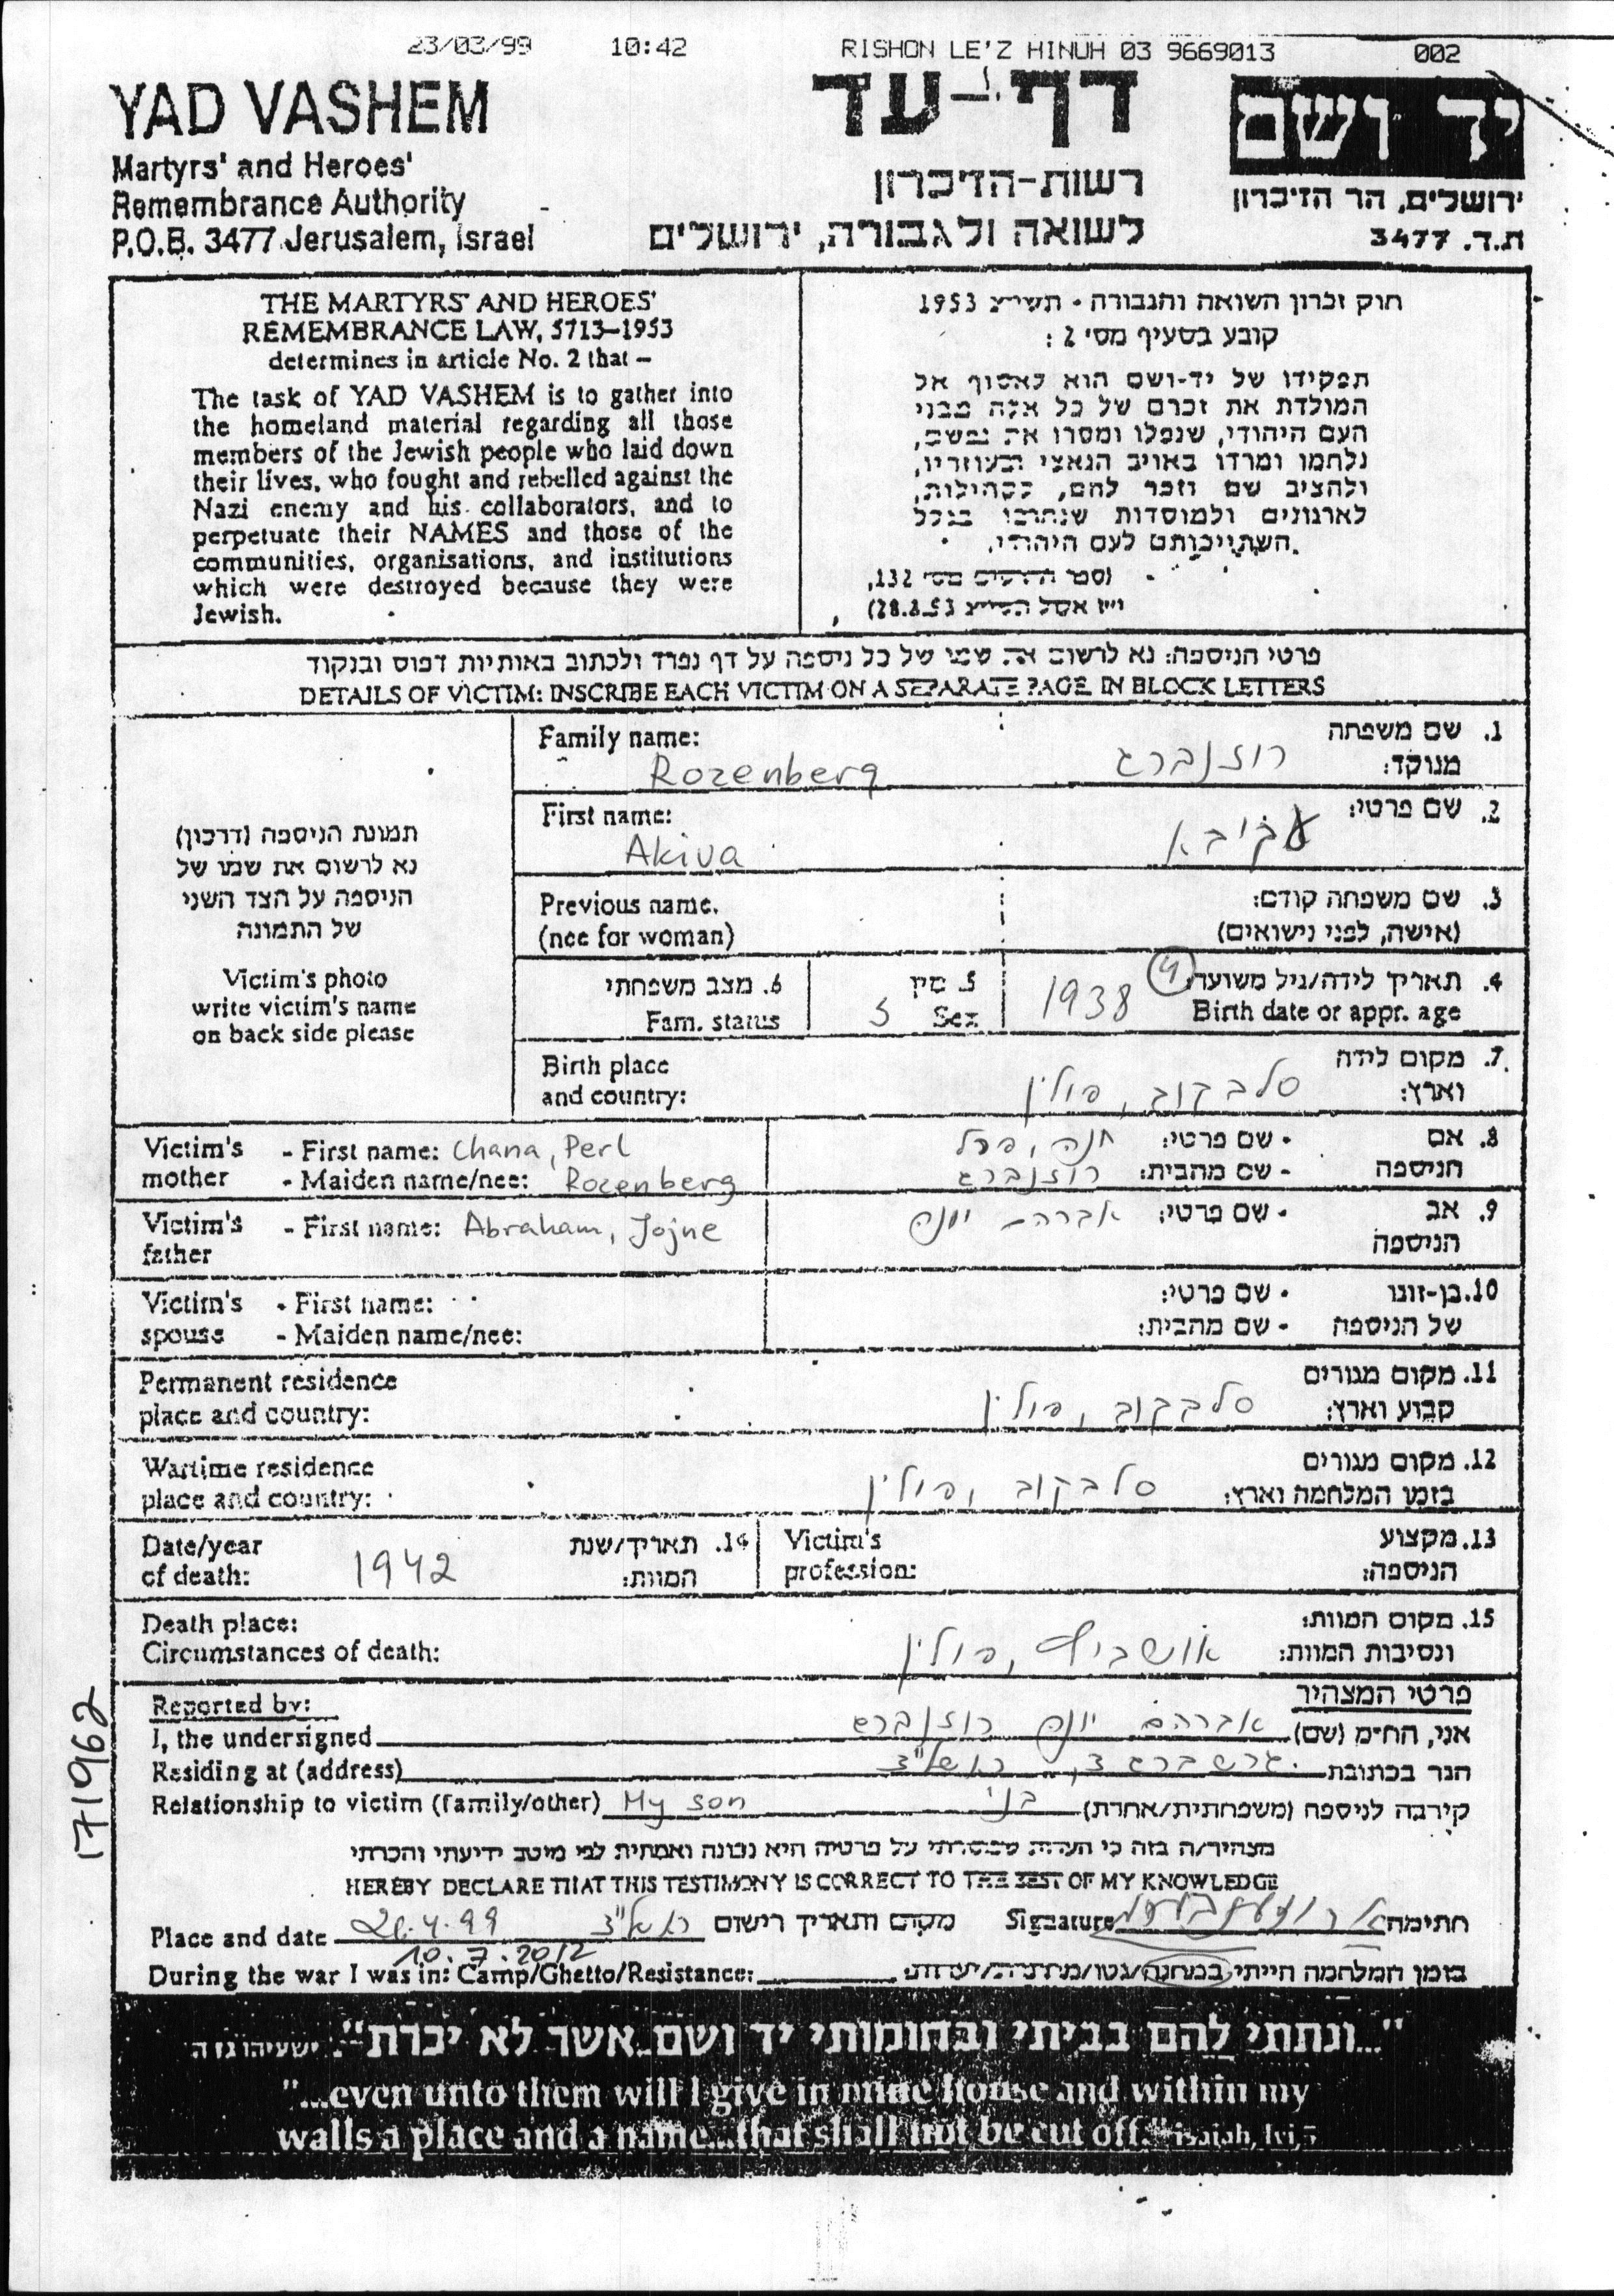 23/03/99 10:42 RISHON LE'Z HINUH 03 9669013 002
YAD VASHEM
Martyrs' and Heroes'
Remembrance Authority
P.O.B. 3477 Jerusalem, Israel
דף-עד
רשות-הזיכרון
לשואה ולגבורה, ירושלים
יד ושם
ירושלים, הר הזיכרון
ת.ד. 3477
THE MARTYRS' AND HEROES'
REMEMBRANCE LAW, 5713-1953
determines in article No. 2 that –
The task of YAD VASHEM is to gather into
the homeland material regarding all those
members of the Jewish people who laid down
their lives, who fought and rebelled against the
Nazi enemy and his collaborators, and to
perpetuate their NAMES and those of the
communities, organisations, and institutions
which were destroyed because they were
Jewish.
חוק זכרון השואה והגבורה - תשי"ג 1953
קובע בסעיף מס' 2 :
תפקידו של יד-ושם הוא לאסוף אל
המולדת את זכרם של כל אלה מבני
העם היהודי, שנפלו ומסרו את נפשם,
נלחמו ומרדו באויב הנאצי ובעוזריו,
ולהציב שם וזכר להם, לקהילות,
לארגונים ולמוסדות שנחרבו בגלל
השתייכותם לעם היהודי.
(ספר החוקים מס' 132,
פרטי הניספה: נא לרשום את שמו של כל ניספה על דף נפרד ולכתוב באותיות דפוס ובנקוד
DETAILS OF VICTIM: INSCRIBE EACH VICTIM ON A SEPARATE PAGE IN BLOCK LETTERS
תמונת הניספה (דרכון)
נא לרשום את שמו של
הניספה על הצד השני
של התמונה
Victim's photo
write victim's name
on back side please
Family name: 1. שם משפחה
Rozenberg רוזנברג מנוקד:
First name: 2. שם פרטי:
Akiva עקיבא
Previous name. 3. שם משפחה קודם:
(nee for woman) (אישה, לפני נישואים)
6. מצב משפחתי 5. מין 4. תאריך לידה/גיל משוער: (4)
Fam. status Sex 1938 Birth date or appr. age
Birth place 7. מקום לידה
and country: סלבקוב, פולין וארץ:
Victim's - First name: Chana, Perl חנה, פרל - שם פרטי: 8. אם
mother - Maiden name/nee: Rozenberg רוזנברג - שם מהבית: הניספה
Victim's - First name: Abraham, Jojne אברהם יונה - שם פרטי: 9. אב
father הניספה
Victim's - First name: - שם פרטי: 10. בן-זוגו
spouse - Maiden name/nee: - שם מהבית: של הניספה
Permanent residence 11. מקום מגורים
place and country: סלבקוב, פולין קבוע וארץ:
Wartime residence 12. מקום מגורים
place and country: סלבקוב, פולין בזמן המלחמה וארץ:
Date/year 14. תאריך/שנת Victim's 13. מקצוע
of death: 1942 המוות: profession: הניספה:
Death place: 15. מקום המוות:
Circumstances of death: אושביץ, פולין ונסיבות המוות:
Reported by: פרטי המצהיר
I, the undersigned אברהם יונה רוזנברג אני, הח"מ (שם)
Residing at (address) גרשברג 3, ראשל"צ הגר בכתובת
Relationship to victim (family/other) My son בני קירבה לניספה (משפחתית/אחרת)
מצהיר/ה בזה כי העדות שמסרתי על פרטיה היא נכונה ואמתית לפי מיטב ידיעתי והכרתי
HEREBY DECLARE THAT THIS TESTIMONY IS CORRECT TO THE BEST OF MY KNOWLEDGE
Place and date 21.4.99 ראשל"צ מקום ותאריך רישום Signature חתימה
10.7.2012
During the war I was in: Camp/Ghetto/Resistance: בזמן המלחמה הייתי במחנה/גטו/מחתרת/יערות:
171962
"...ונתתי להם בביתי ובחומותי יד ושם...אשר לא יכרת". ישעיהו נו ה
"...even unto them will I give in mine house and within my
walls a place and a name...that shall not be cut off." isaiah, lvi,5